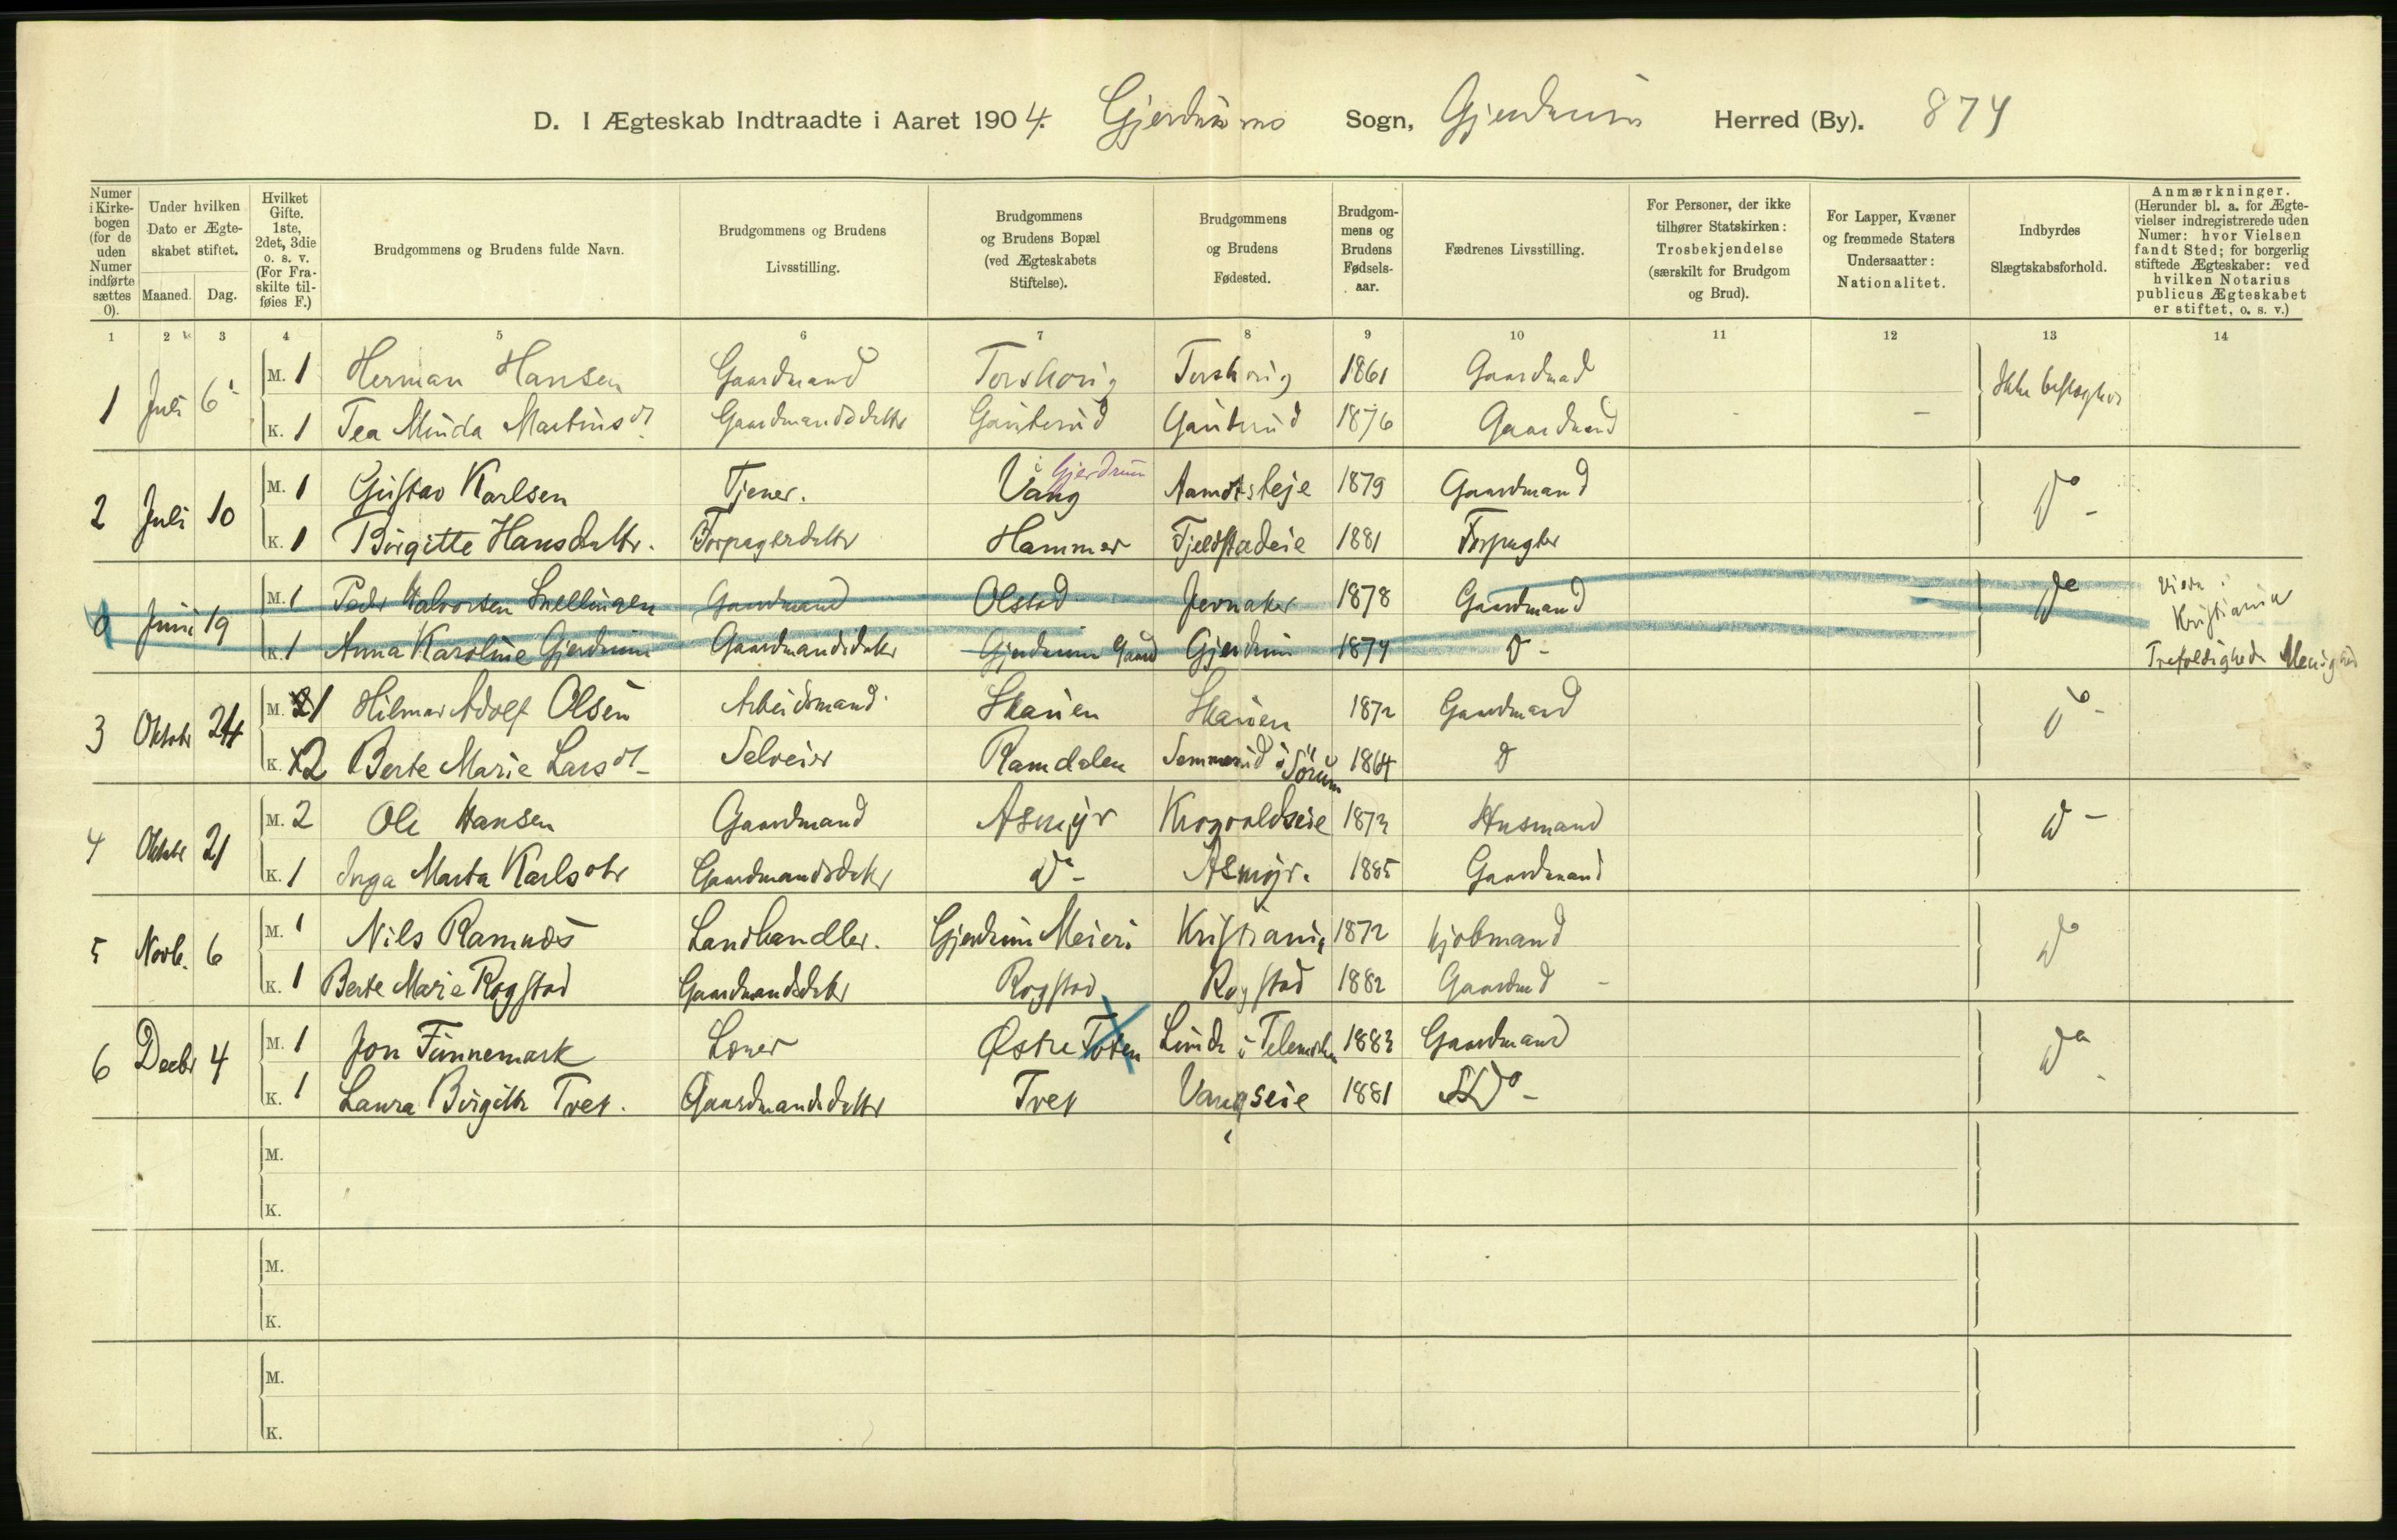 D. I Ægteskab Indtraadte i Aaret 1904. Gjerdrums Sogn, Gjerdrum Herred (By). 874
Numer i Kirke-bogen (for de uden Numer indførte sættes 0).
Under hvilken Dato er Ægte-skabet stiftet.
Maaned. Dag.
Hvilket Gifte. 1ste, 2det, 3die o. s. v. (For Fra-skilte til-føies F.)
Brudgommens og Brudens fulde Navn.
Brudgommens og Brudens Livsstilling.
Brudgommens og Brudens Bopæl (ved Ægteskabets Stiftelse).
Brudgommens og Brudens Fødested.
Brudgom-mens og Brudens Fødsels-aar.
Fædrenes Livsstilling.
For Personer, der ikke tilhører Statskirken: Trosbekjendelse (særskilt for Brudgom og Brud).
For Lapper, Kvæner og fremmede Staters Undersaatter: Nationalitet.
Indbyrdes Slægtskabsforhold.
Anmærkninger. (Herunder bl. a. for Ægte-vielser indregistrerede uden Numer: hvor Vielsen fandt Sted; for borgerlig stiftede Ægteskaber: ved hvilken Notarius publicus Ægteskabet er stiftet, o. s. v.)
1 2 3 4 5 6 7 8 9 10 11 12 13 14
1 Juli 6 M. 1 Herman Hansen Gaardmand 1861 Gaardmad Ikke
K. 1 Tea Minda Martinsdt. Gaardmandsdattr Gauterud Gauterud 1876 Gaardmand
2 Juli 10 M. 1 Gustav Karlsen Tjener. Vang Gjerdrum 1879 Gaardmand Do -
K. 1 Birgitte Hansdattr. Hammer Fjeldstadeie 1881
0 Juni 19 M. 1 Peder Halvorsen Snellingen Gaardmand Olstad Jevnaker 1878 Gaardmand Do Viede i Kristiania
K. 1 Anna Karoline Gjerdrum Gaardmandsdatr Gjerdrum Gaard Gjerdrum 1874 Do - Trefoldigheds Menighed
3 Oktobr 24 M. 1 Hilmar Adolf Olsen Arbeidsmand Skauen Skauen 1872 Gaardmand Do -
K. 2 Berte Marie Larsdt - Selveier Ramdalen i Sørum 1864 Do
4 Oktobr 21 M. 2 Ole Hansen Gaardmand Asmyr Krogvoldseie 1873 Husmand Do -
K. 1 Inga Marta Karlsdtr Gaardmandsdatr Do - Asmyr. 1885 Gaardmand
5 Novb. 6 M. 1 Nils Ramnæs Landhandler. Gjerdrum Meieri Kristiania 1872 Kjøbmand Do
K. 1 Berte Marie Rogstad Gaardmandsdatr Rogstad Rogstad 1882 Gaardmd -
6 Decbr 4 M. 1 Jon Finnemark Østre Toten i Telemarken 1883 Gaardmand Do -
K. 1 Laura Birgitte Tvet. Gaardmandsdattr Tvet Vangseie 1881 Do -
M.
K.
M.
K.
M.
K.